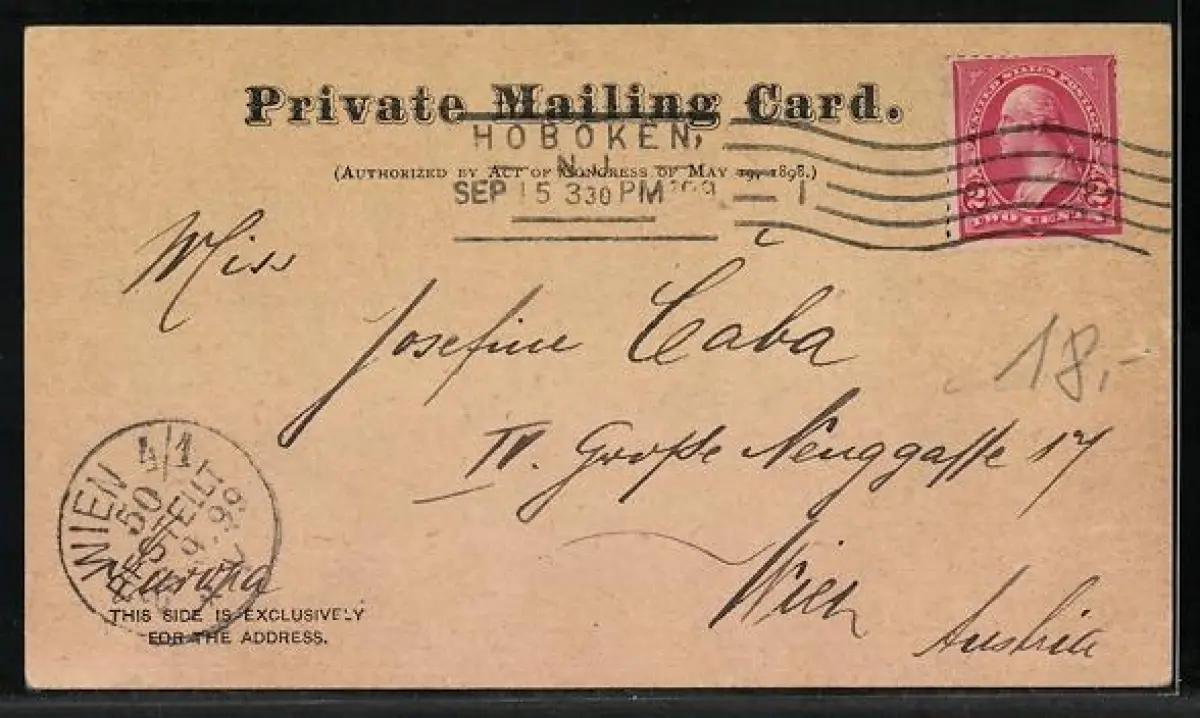 Private Mailing Card.
(AUTHORIZED BY ACT OF CONGRESS OF MAY 19, 1898.)
HOBOKEN,
N.J.
SEP 15 330 PM '99 1
UNITED STATES POSTAGE
2 2
TWO CENTS
Miss
Josefine Cába
IV. Große Neuggasse 17
Wien
Austria
Europa
18,-
WIEN 4/1
50
BESTELLT
9.99
THIS SIDE IS EXCLUSIVELY
FOR THE ADDRESS.